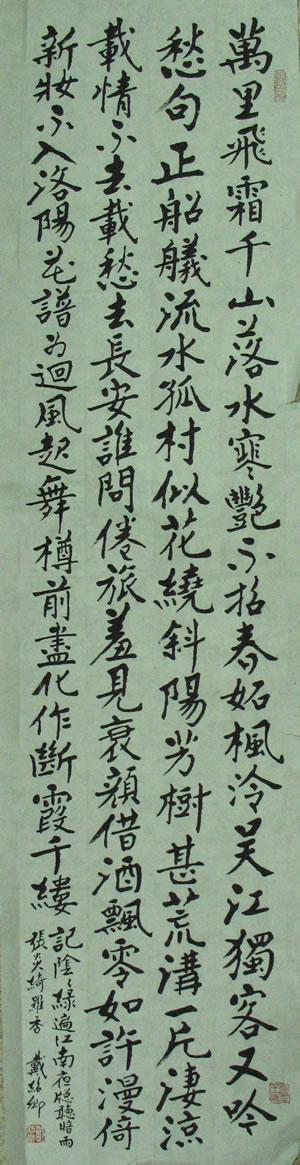 萬里飛霜千山落水寒豔不招春妬楓泠吳江獨客又吟
愁句正船艤流水孤村似花繞斜陽芳樹甚荒溝一片淒涼
載情不去載愁去長安誰問倦旅羞見衰顏借酒飄零如許漫倚
新妝不入洛陽花譜為迴風起舞樽前盡化作斷霞千縷
記陰々綠遍江南夜窓聽暗雨
張炎綺羅香 戴